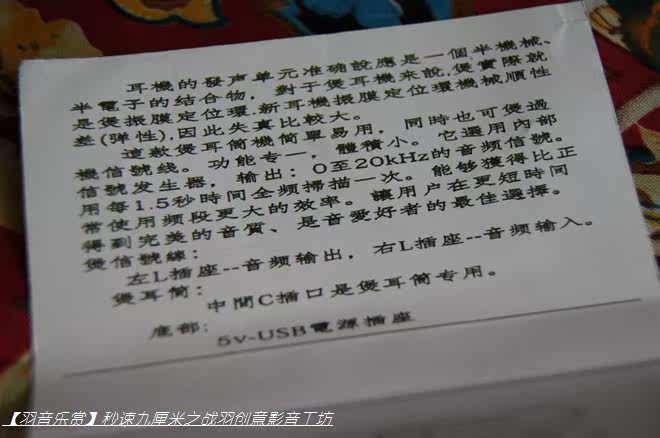 耳機的發声单元准确說應是一個半機械、
半電子的结合物，對于煲耳機来說,煲實際就
是煲振膜定位環,新耳機振膜定位環機械順性
差(弹性),因此失真比較大。
這款煲耳筒機简單易用，同時也可煲過
機信號线。功能专一，體積小。它選用内部
信號发生器，输出：0至20kHz的音频信號。
用每1.5秒時间全频掃描一次。能够獲得比正
常使用频段更大的效率。讓用户在更短時间
得到完美的音質、是音愛好者的最佳選擇。
煲信號線：
左L插座--音频输出，右L插座--音频输入。
煲耳筒：
中間C插口是煲耳筒专用。
底部：
5v-USB電源插座
【羽音乐赏】秒速九厘米之战羽创意影音工坊